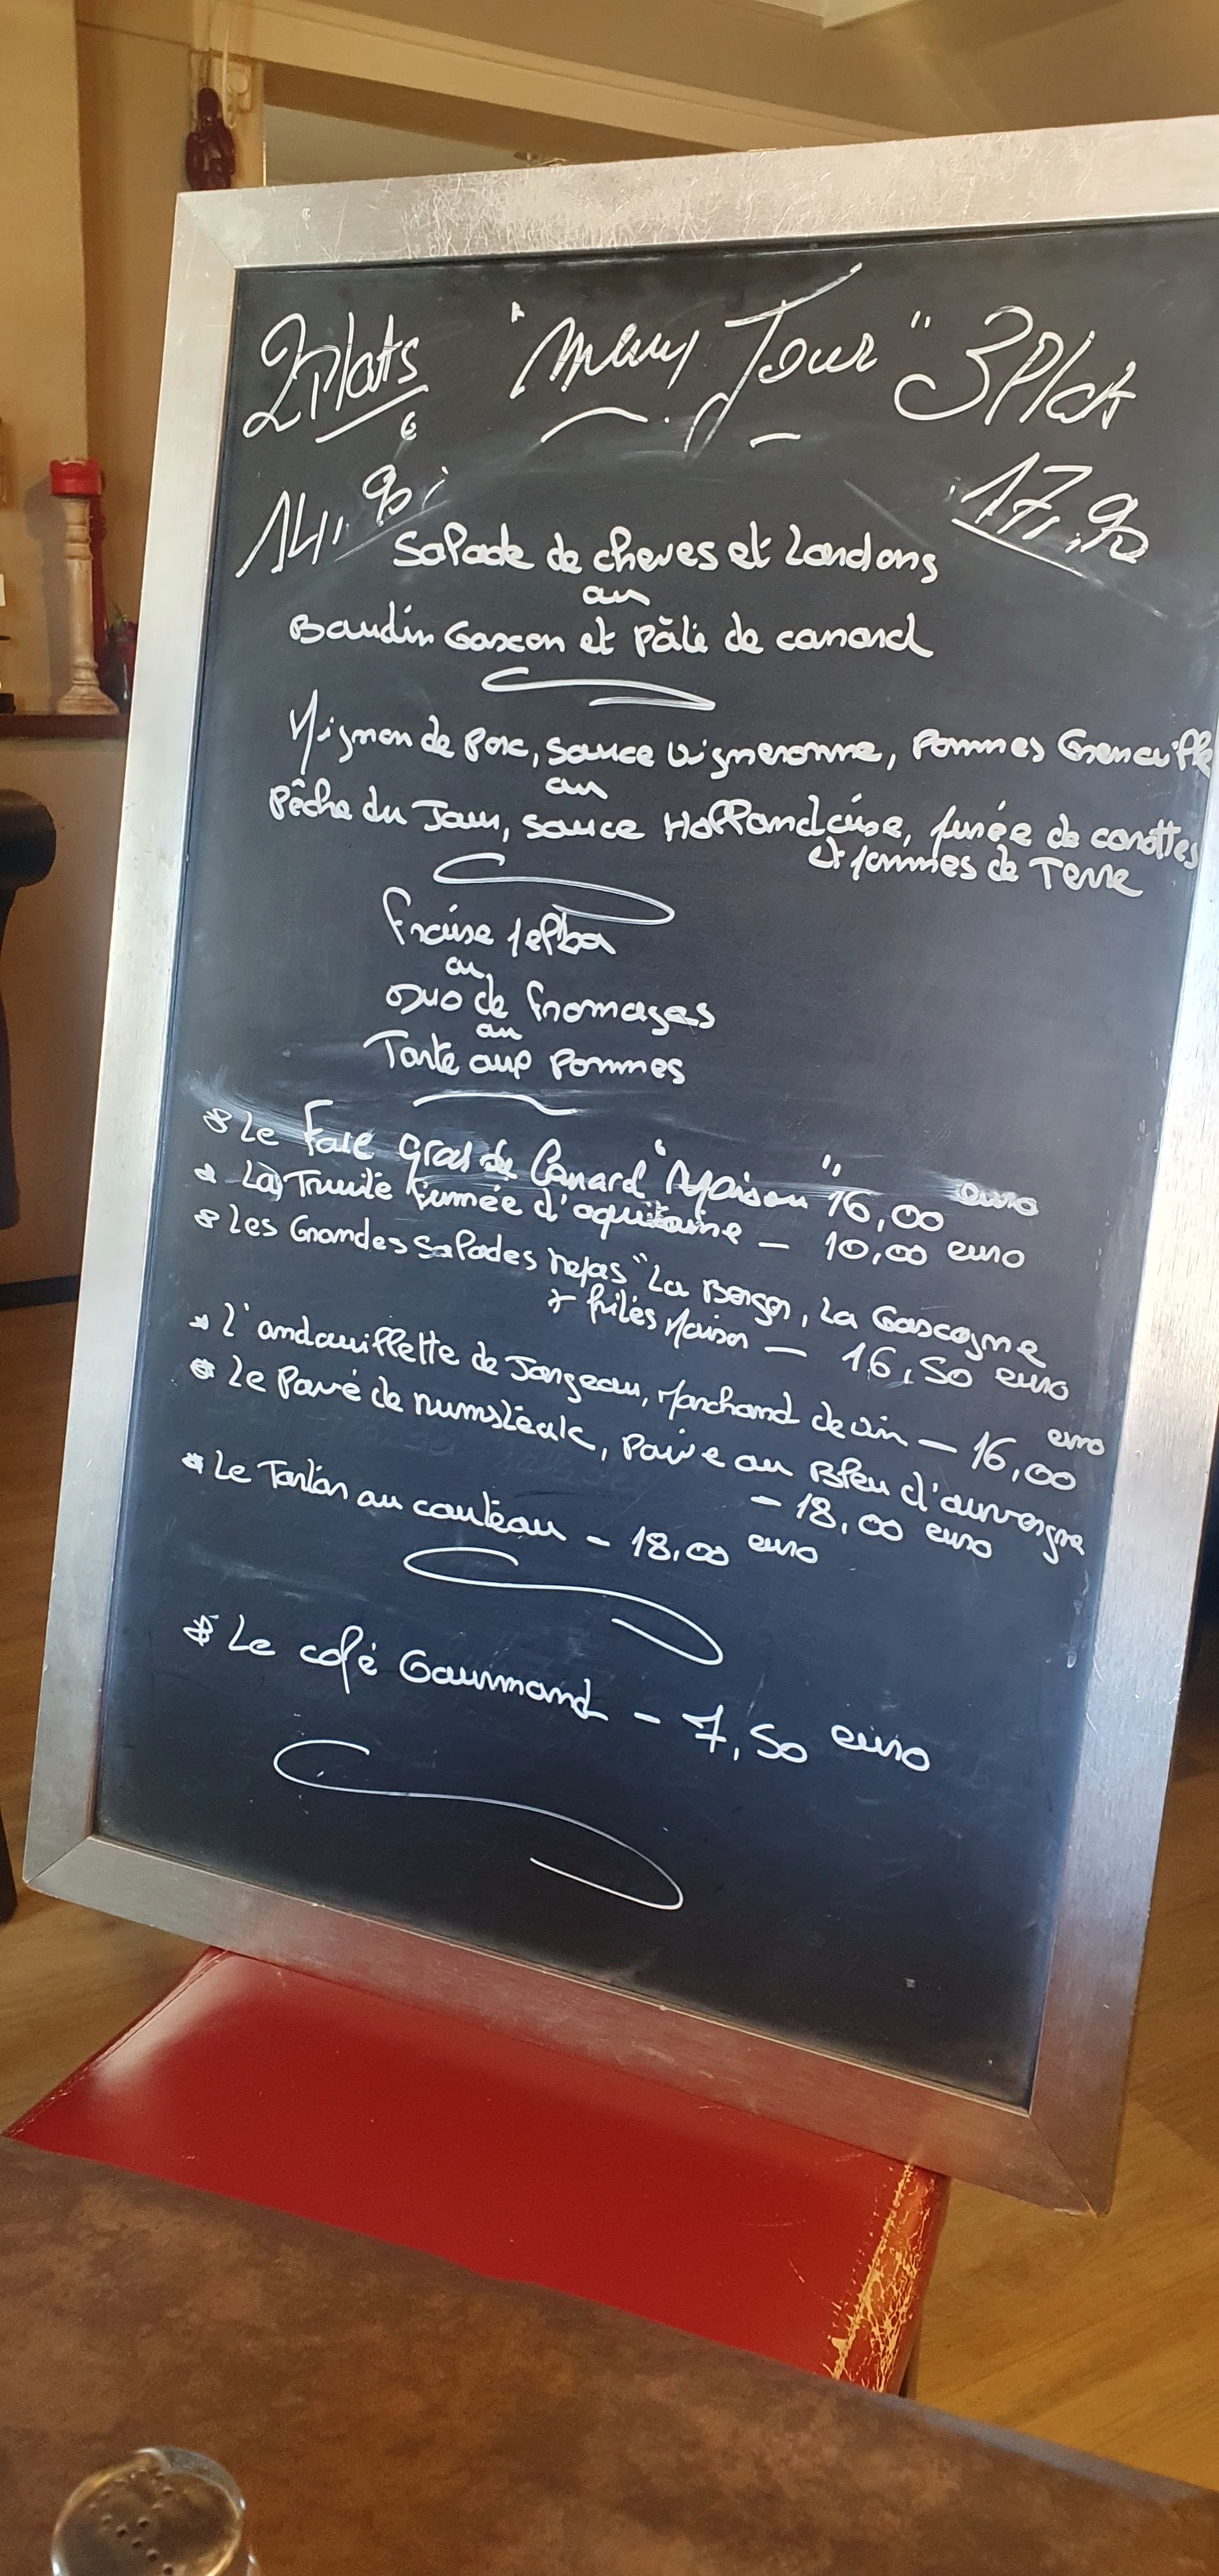 2 Plats "Menu Jour" 3 Plats
€
14,90 17,90
Salade de chèvres et Lardons
ou
Boudin Gascon et Pâté de canard
Mignon de Porc, sauce vigneronne, Pommes Grenailles
ou
Pêche du Jour, sauce Hollandaise, purée de carottes
et pommes de Terre
Fraise Melba
ou
Duo de fromages
ou
Tarte aux Pommes
* Le Foie gras de Canard "Maison" 16,00 euro
* La Truite fumée d'aquitaine - 10,00 euro
* Les Grandes Salades repas "La Berger, La Gascogne
+ frites Maison - 16,50 euro
* L'andouillette de Jargeau, Marchand de vin - 16,00 euro
* Le Pavé de rumsteak, Poivre ou Bleu d'auvergne
- 18,00 euro
* Le Tartare au couteau - 18,00 euro
* Le café Gourmand - 7,50 euro